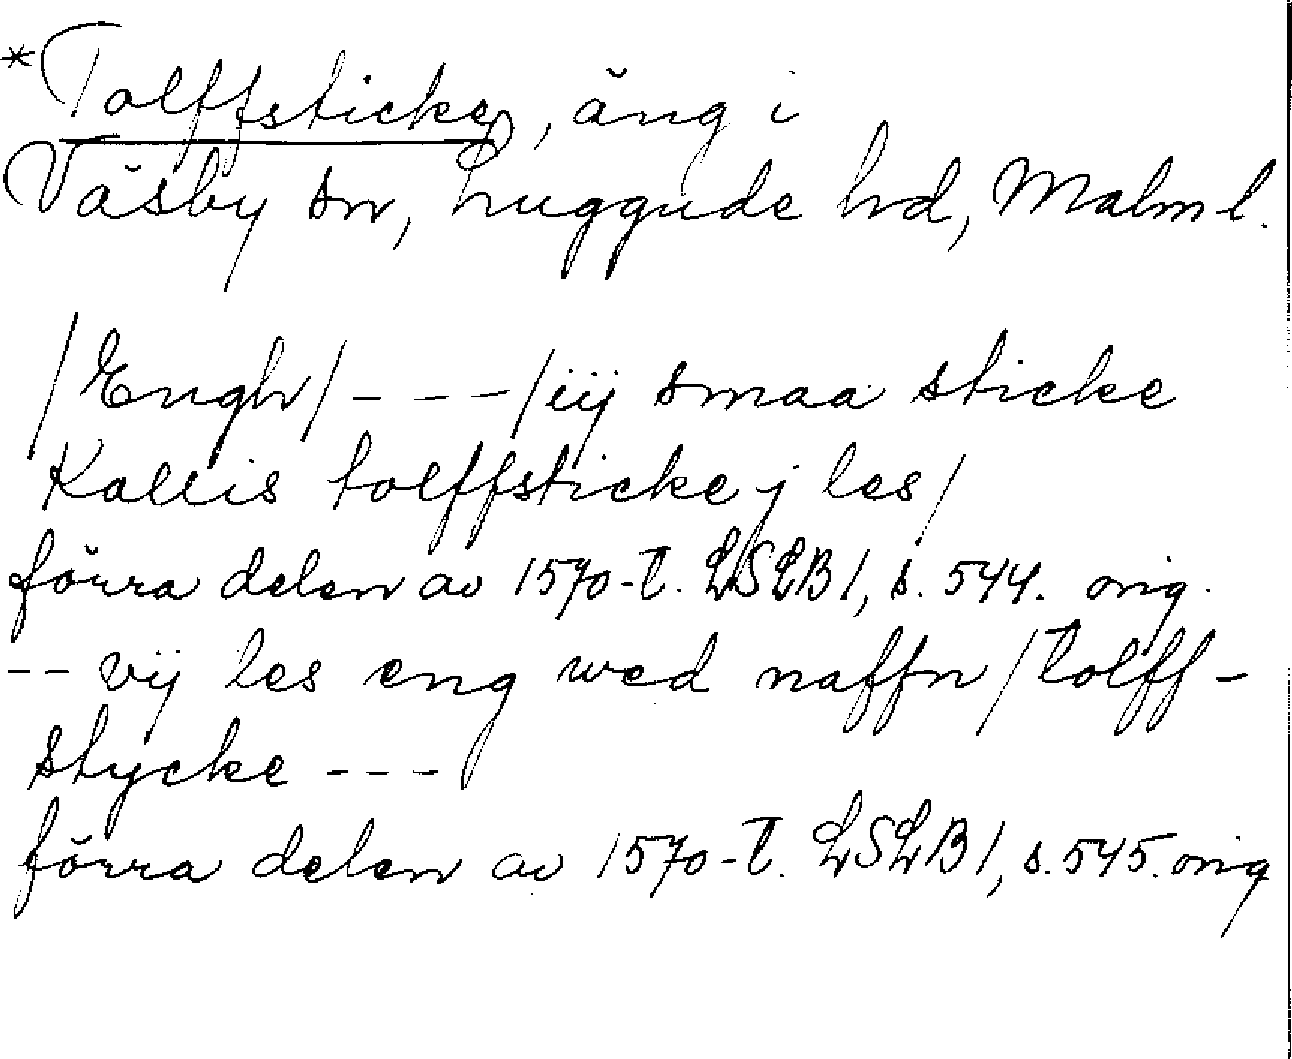 *Tolffsticke, äng i
Väsby sn, Luggude hd, Malm l.
/Engh/ - - - /iij smaa sticke
Kallis tolffsticke j les/
förra delen av 1570-t. LSLB 1, s. 544. orig.
-- vij les eng wed naffn /tolff-
stycke ---
förra delen av 1570-t. LSLB 1, s. 545. orig